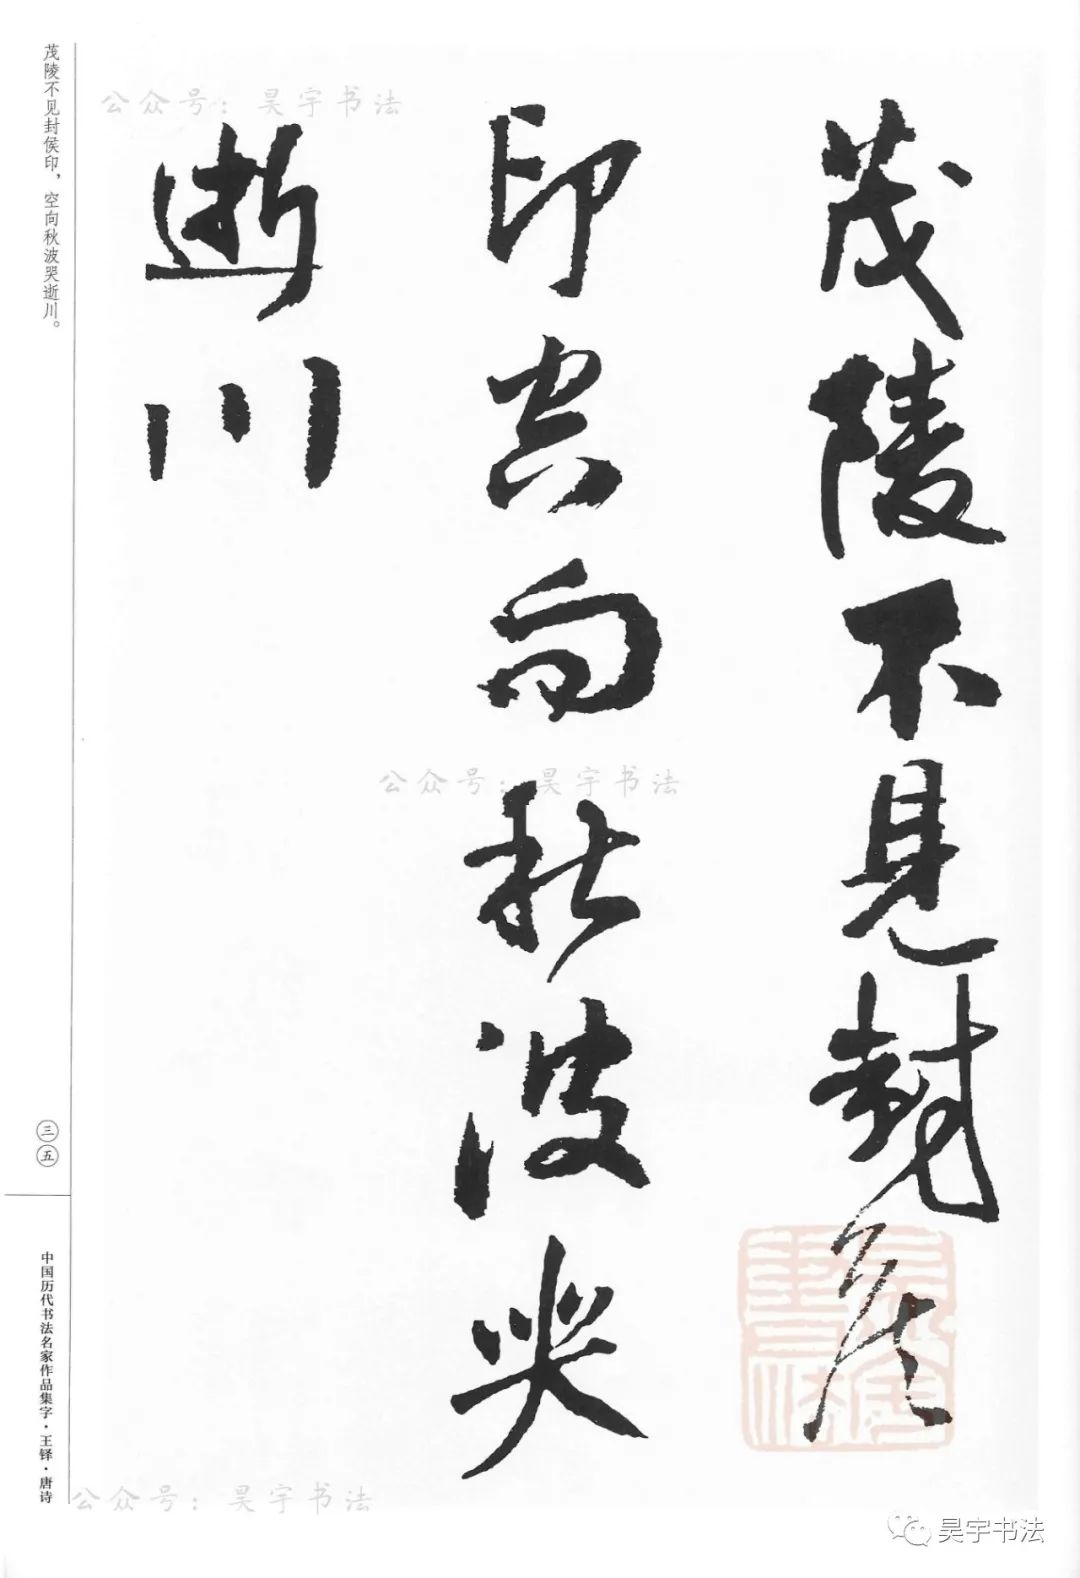 茂陵不見封侯
印空向秋波哭
逝川
茂陵不见封侯印，空向秋波哭逝川。
三五
中国历代书法名家作品集字·王铎·唐诗
公众号：昊宇书法
公众号：昊宇书法
公众号：昊宇书法
昊宇书法
昊宇书法